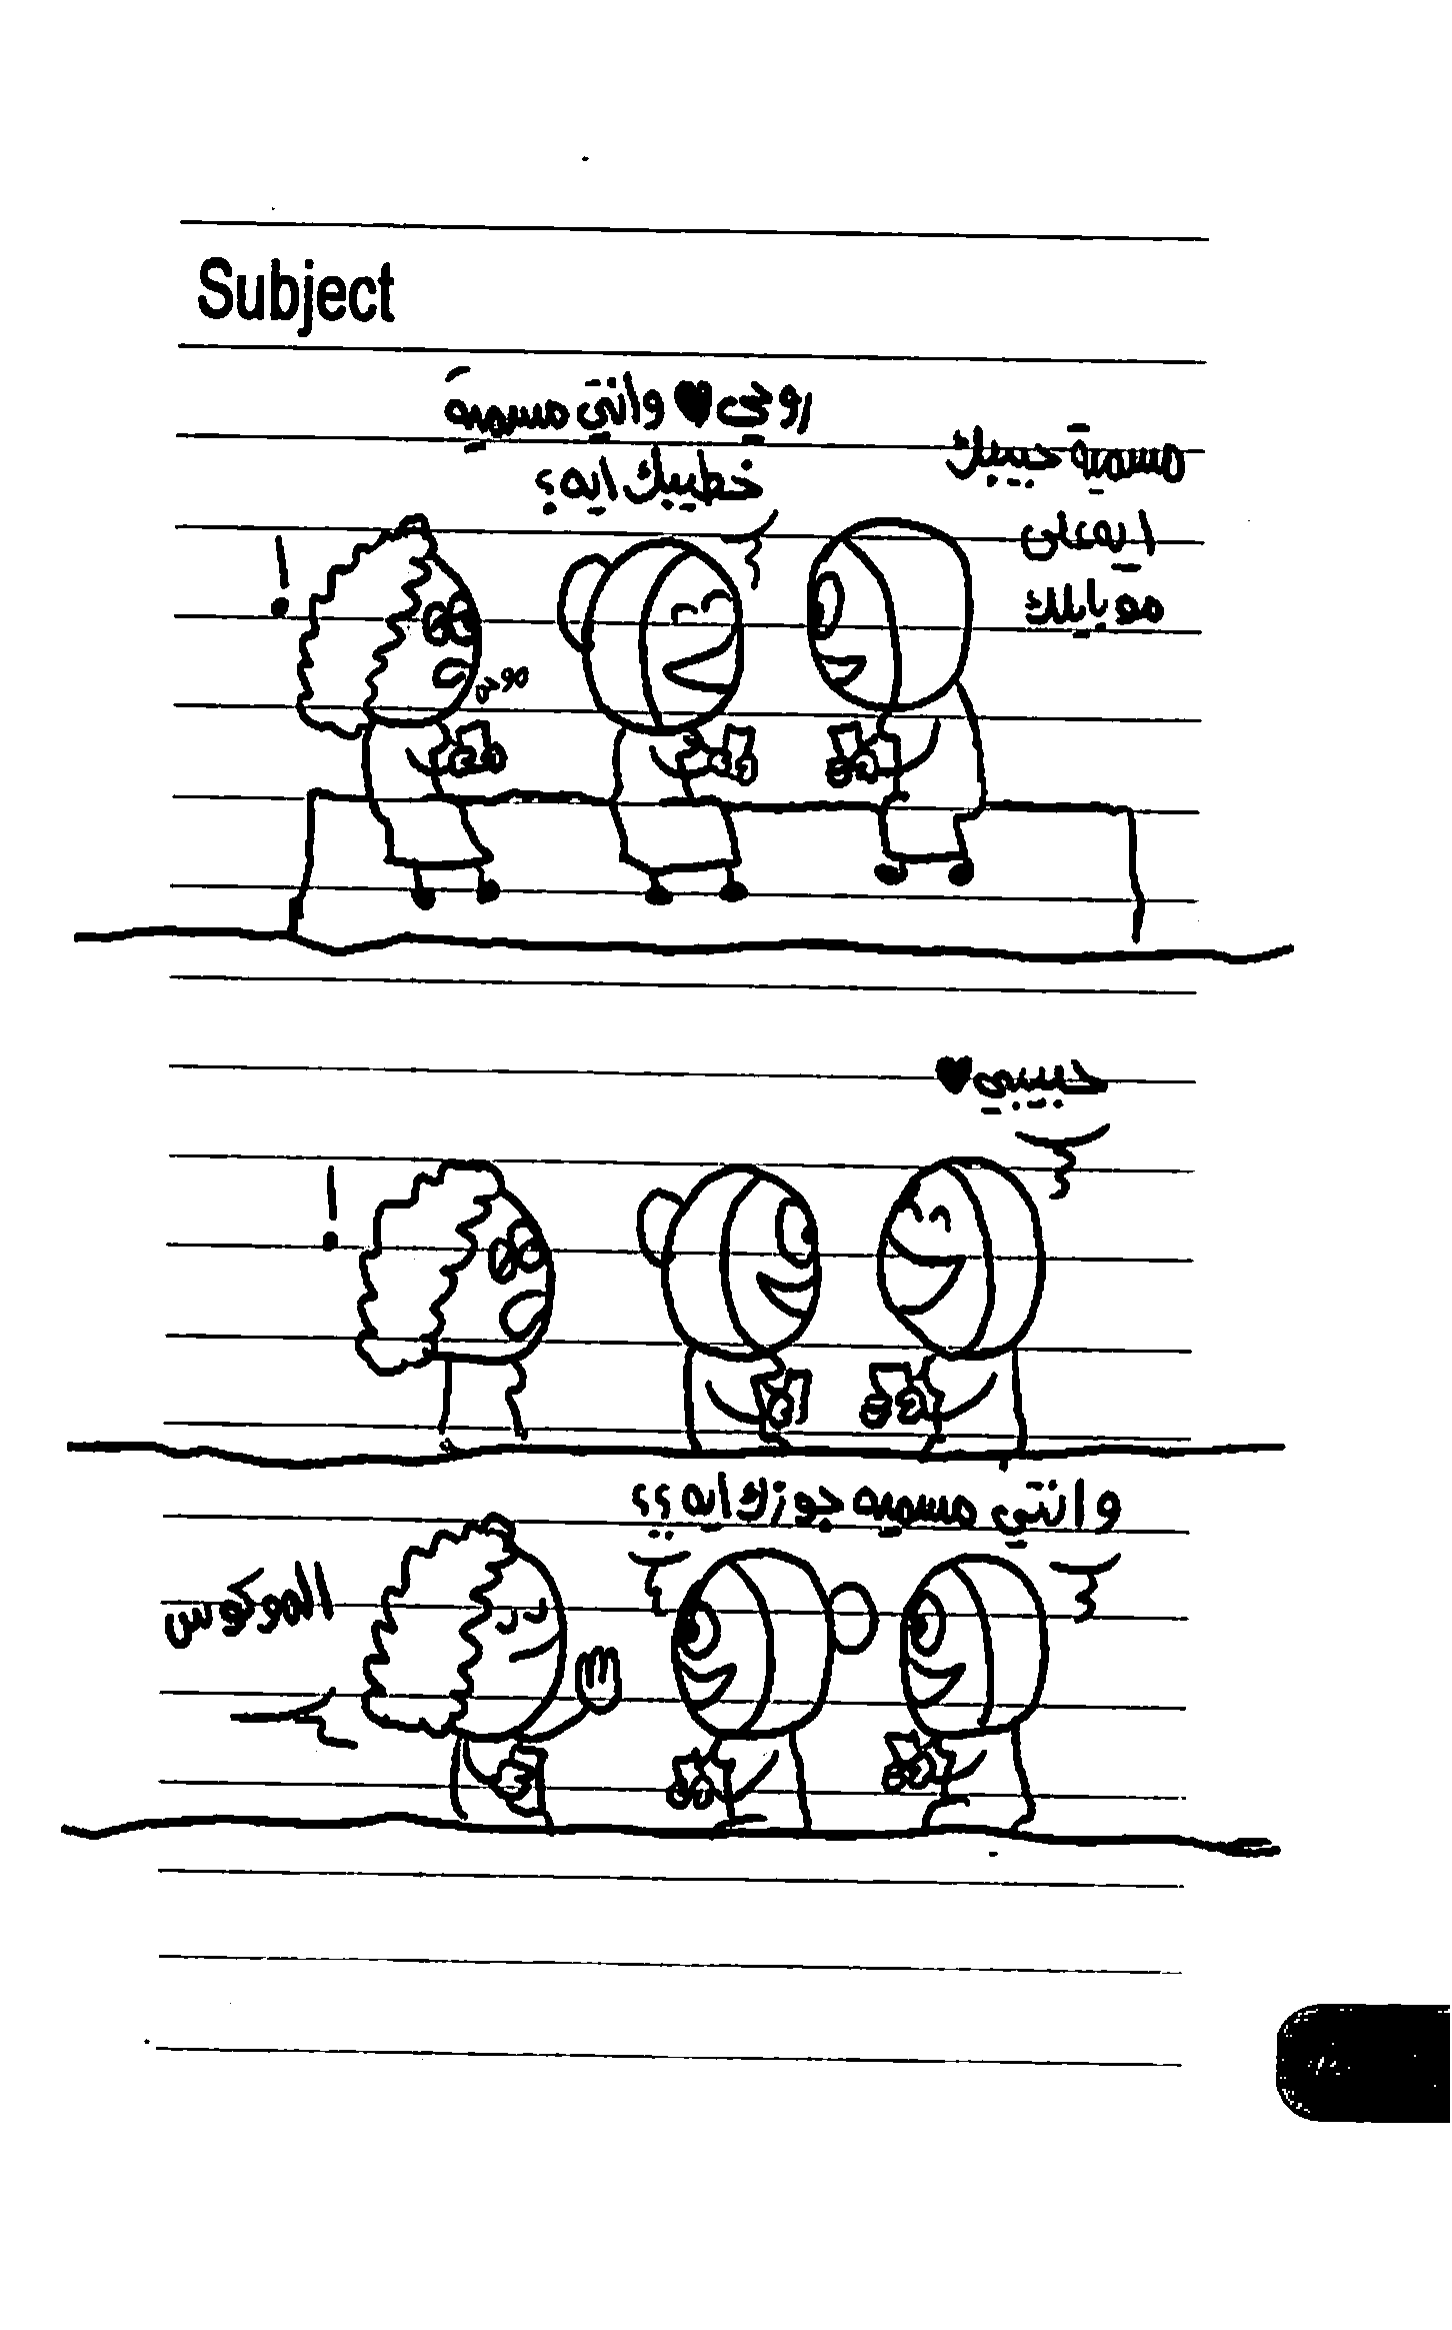 Subject
مسمية حبيبك
ايه على
موبايلك
روحي♥ وانتي مسمية
خطيبك ايه؟
!
حبيبي♥
!
وانتي مسميه جوزك ايه؟؟
الموكوس